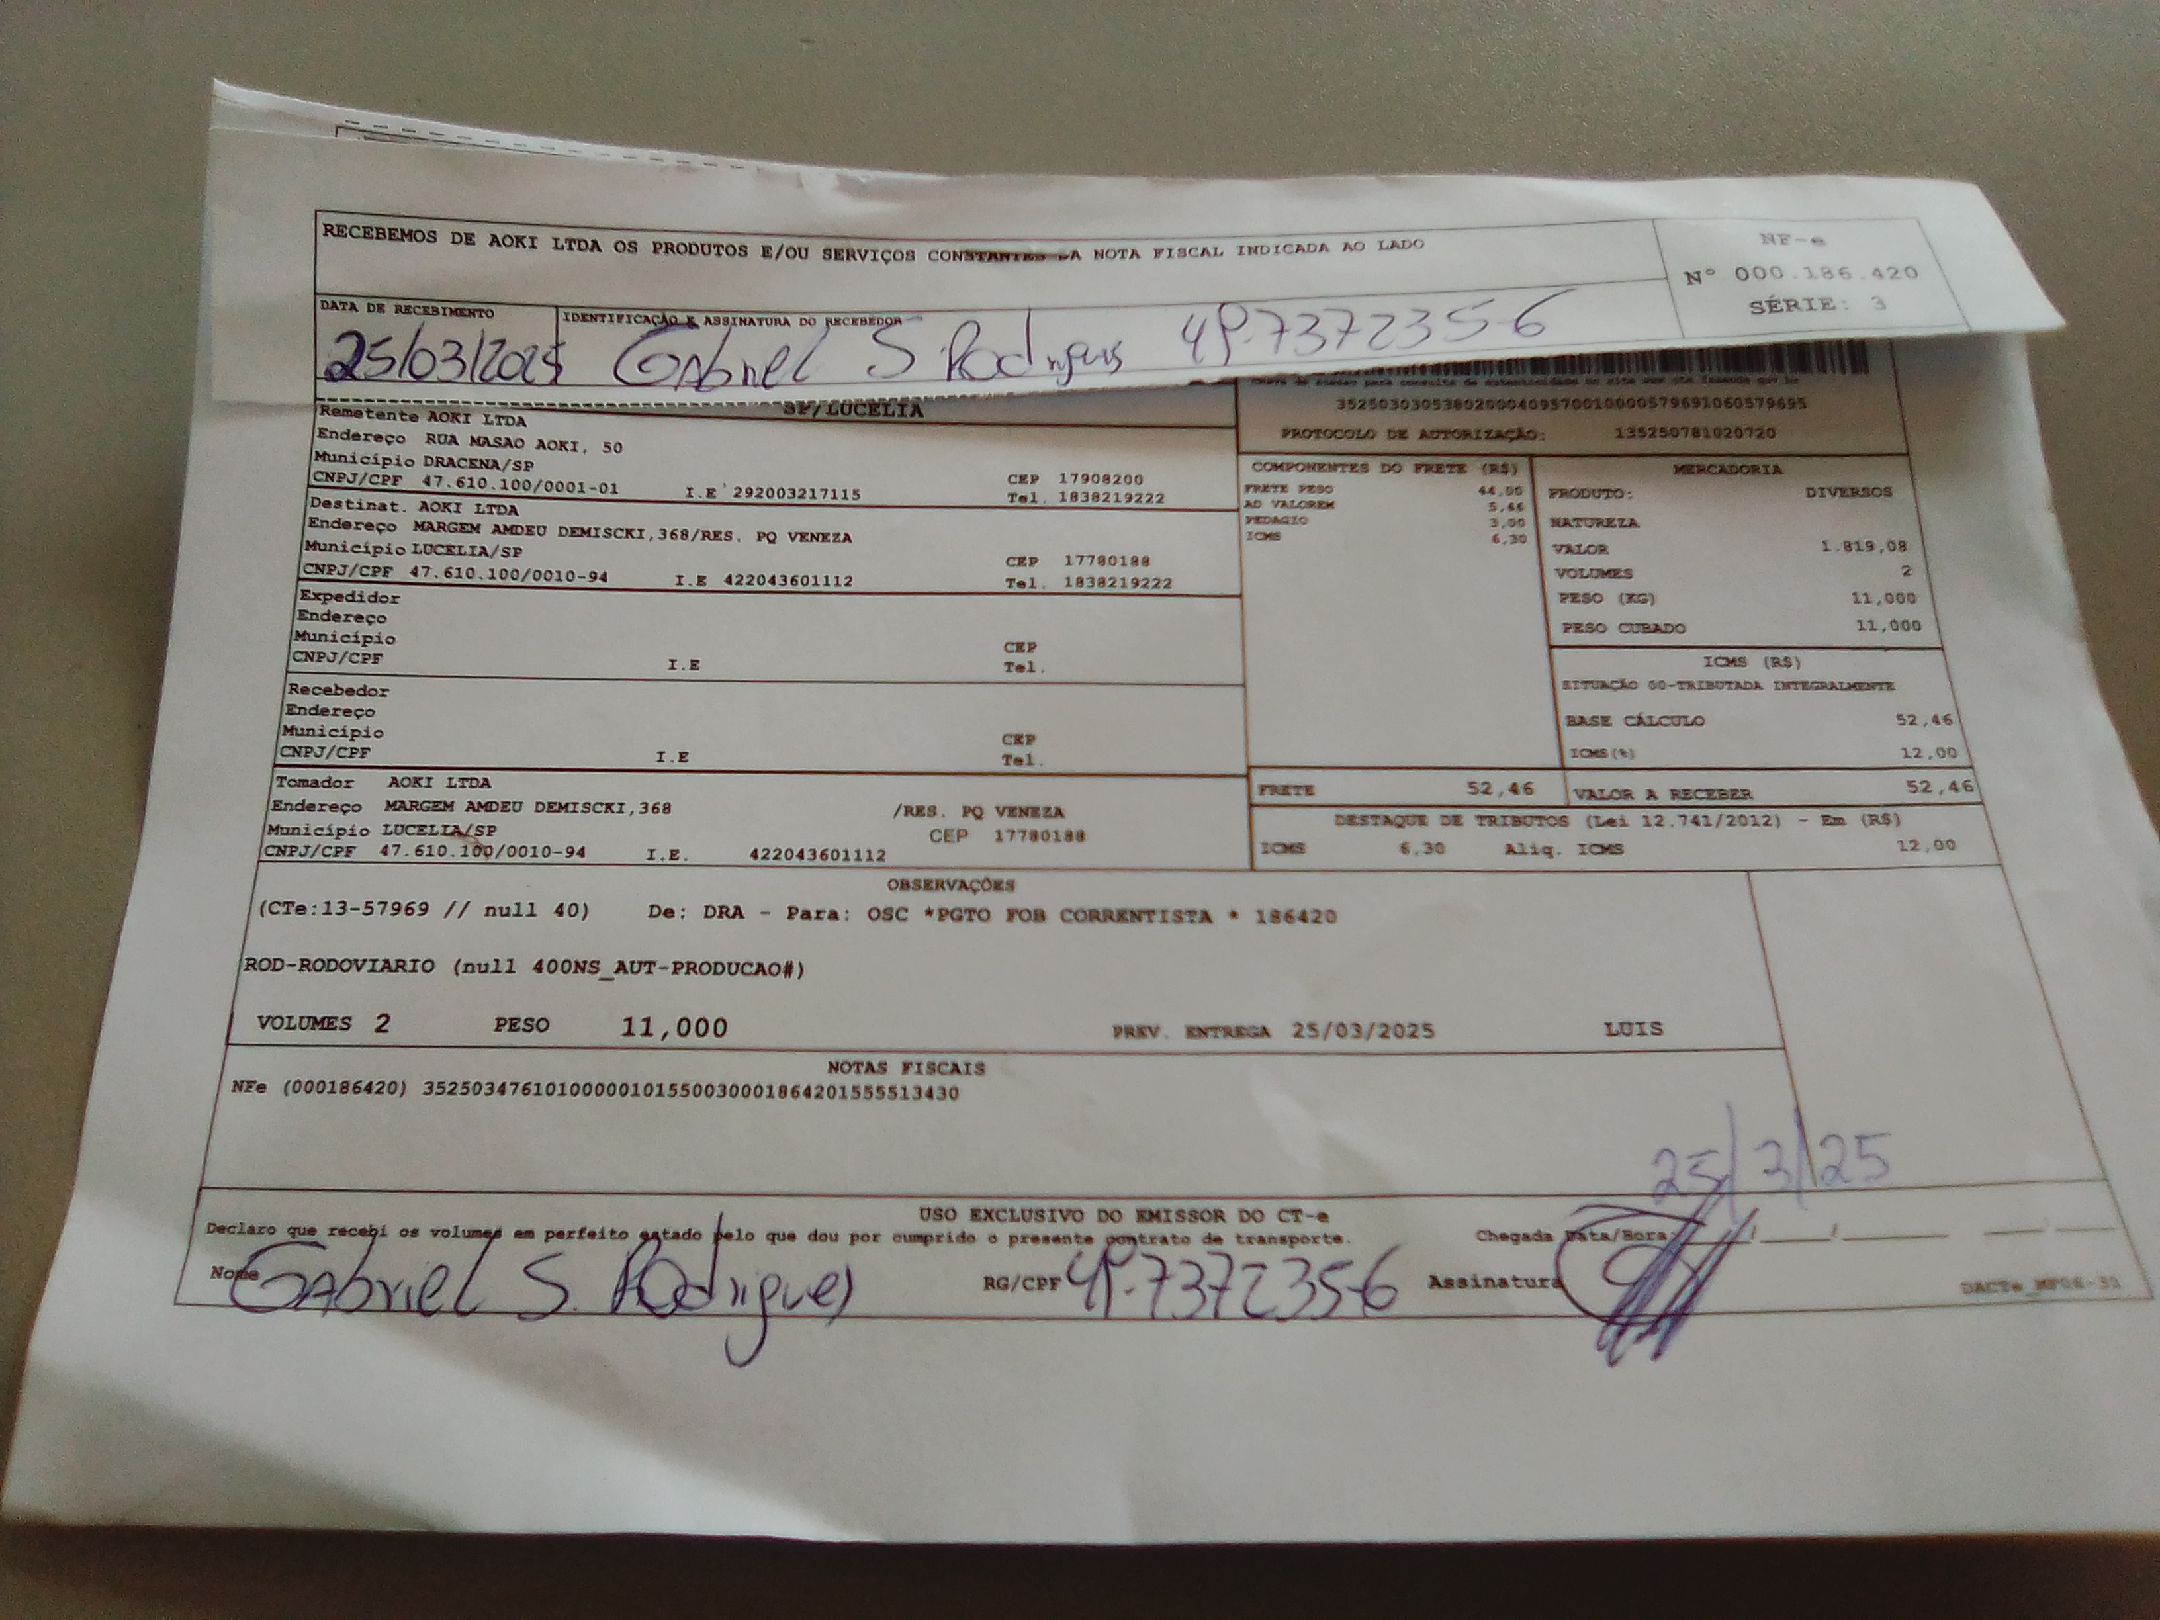 RECEBEMOS DE AOKI LTDA OS PRODUTOS E/OU SERVIÇOS CONSTANTES DA NOTA FISCAL INDICADA AO LADO
NF-e
Nº 000.186.420
SÉRIE: 3
DATA DE RECEBIMENTO
IDENTIFICAÇÃO E ASSINATURA DO RECEBEDOR
25/03/2025 Gabriel S Rodrigues
SP/LUCELIA
35250303053802000409570010000579691060579695
PROTOCOLO DE AUTORIZAÇÃO: 135250781020720
Remetente AOKI LTDA
Endereço RUA MASAO AOKI, 50
Município DRACENA/SP CEP 17908200
CNPJ/CPF 47.610.100/0001-01 I.E 292003217115 Tel. 1838219222
Destinat. AOKI LTDA
Endereço MARGEM AMDEU DEMISCKI,368/RES. PQ VENEZA
Município LUCELIA/SP CEP 17780188
CNPJ/CPF 47.610.100/0010-94 I.E 422043601112 Tel. 1838219222
Expedidor
Endereço
Município CEP
CNPJ/CPF I.E Tel.
Recebedor
Endereço
Município CEP
CNPJ/CPF I.E Tel.
Tomador AOKI LTDA
Endereço MARGEM AMDEU DEMISCKI,368 /RES. PQ VENEZA
Município LUCELIA/SP CEP 17780188
CNPJ/CPF 47.610.100/0010-94 I.E. 422043601112
COMPONENTES DO FRETE (R$)
FRETE PESO
AD VALOREM
PEDAGIO 3,00
ICMS 6,30
MERCADORIA
PRODUTO: DIVERSOS
NATUREZA
VALOR 1.819,08
VOLUMES 2
PESO (KG) 11,000
PESO CUBADO 11,000
ICMS (R$)
SITUAÇÃO 00-TRIBUTADA INTEGRALMENTE
BASE CÁLCULO 52,46
ICMS(%) 12,00
FRETE 52,46 VALOR A RECEBER 52,46
DESTAQUE DE TRIBUTOS (Lei 12.741/2012) - Em (R$)
ICMS 6,30 Aliq. ICMS 12,00
OBSERVAÇÕES
(CTe:13-57969 // null 40) De: DRA - Para: OSC *PGTO FOB CORRENTISTA * 186420
ROD-RODOVIARIO (null 400NS_AUT-PRODUCAO#)
VOLUMES 2 PESO 11,000 PREV. ENTREGA 25/03/2025 LUIS
NOTAS FISCAIS
NFe (000186420) 35250347610100000101550030001864201555513430
25/3/25
USO EXCLUSIVO DO EMISSOR DO CT-e
Declaro que recebi os volumes em perfeito estado pelo que dou por cumprido o presente contrato de transporte. Chegada Data/Hora:
Nome Gabriel S. Rodrigues RG/CPF Assinatura